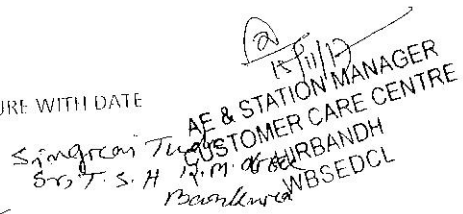 2
15/11/17
URE WITH DATE
AE & STATION MANAGER
CUSTOMER CARE CENTRE
HIRBANDH
WBSEDCL
Singrai
Sr, T. S. H
Bankura